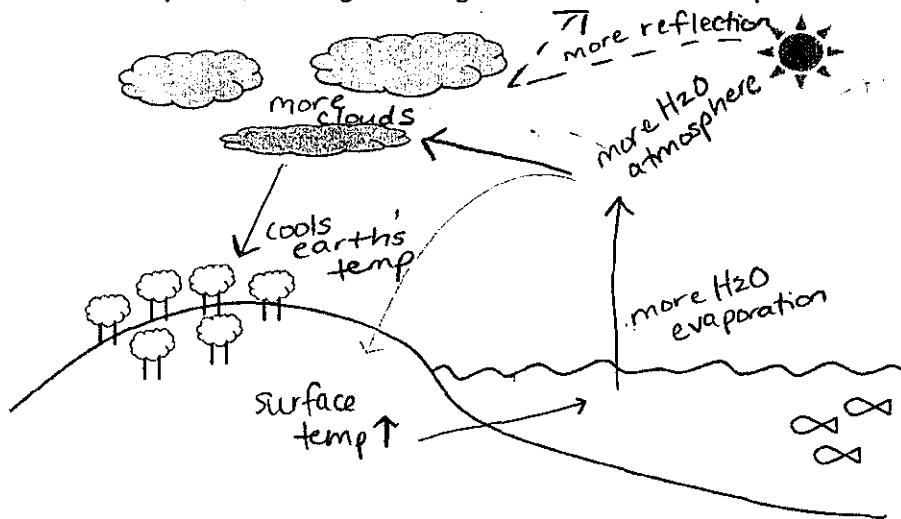 more reflection
more
clouds
more H2O
atmosphere
cools
earth's
temp
more H2O
evaporation
surface
temp ↑